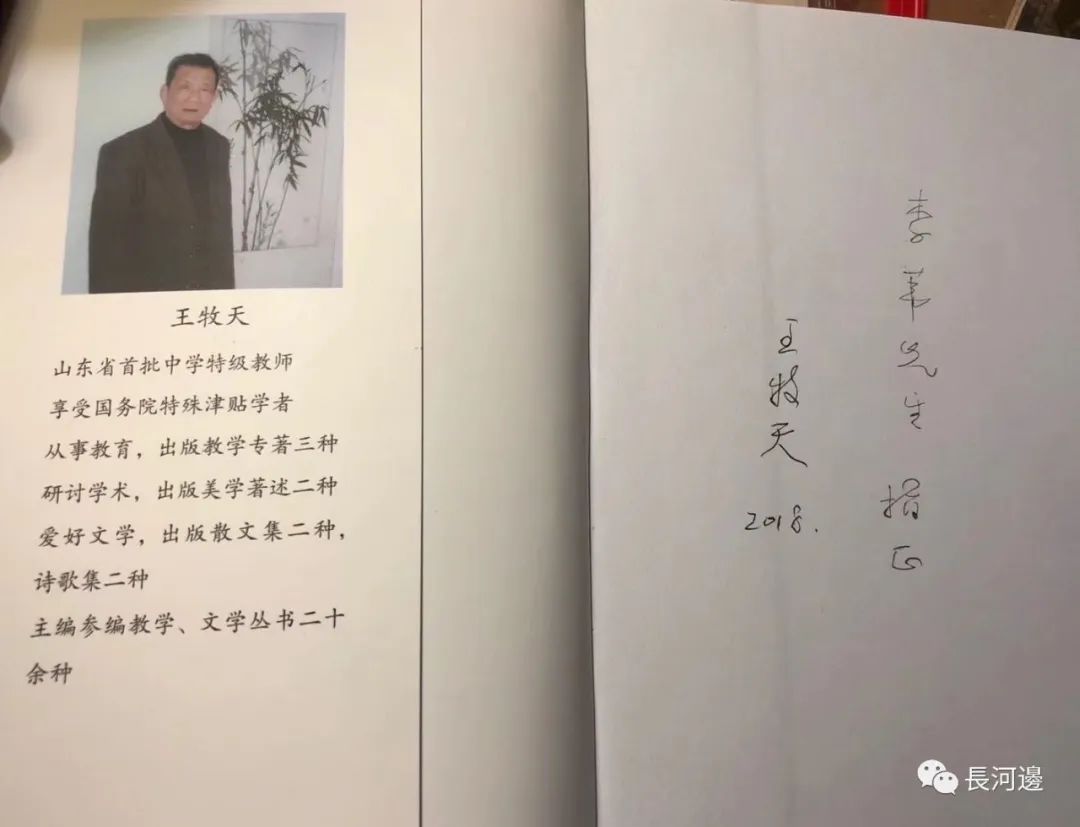 王牧天
山东省首批中学特级教师
享受国务院特殊津贴学者
从事教育，出版教学专著三种
研讨学术，出版美学著述二种
爱好文学，出版散文集二种，
诗歌集二种
主编参编教学、文学丛书二十
余种
李苇先生 指正
王牧天
2018.
長河邊